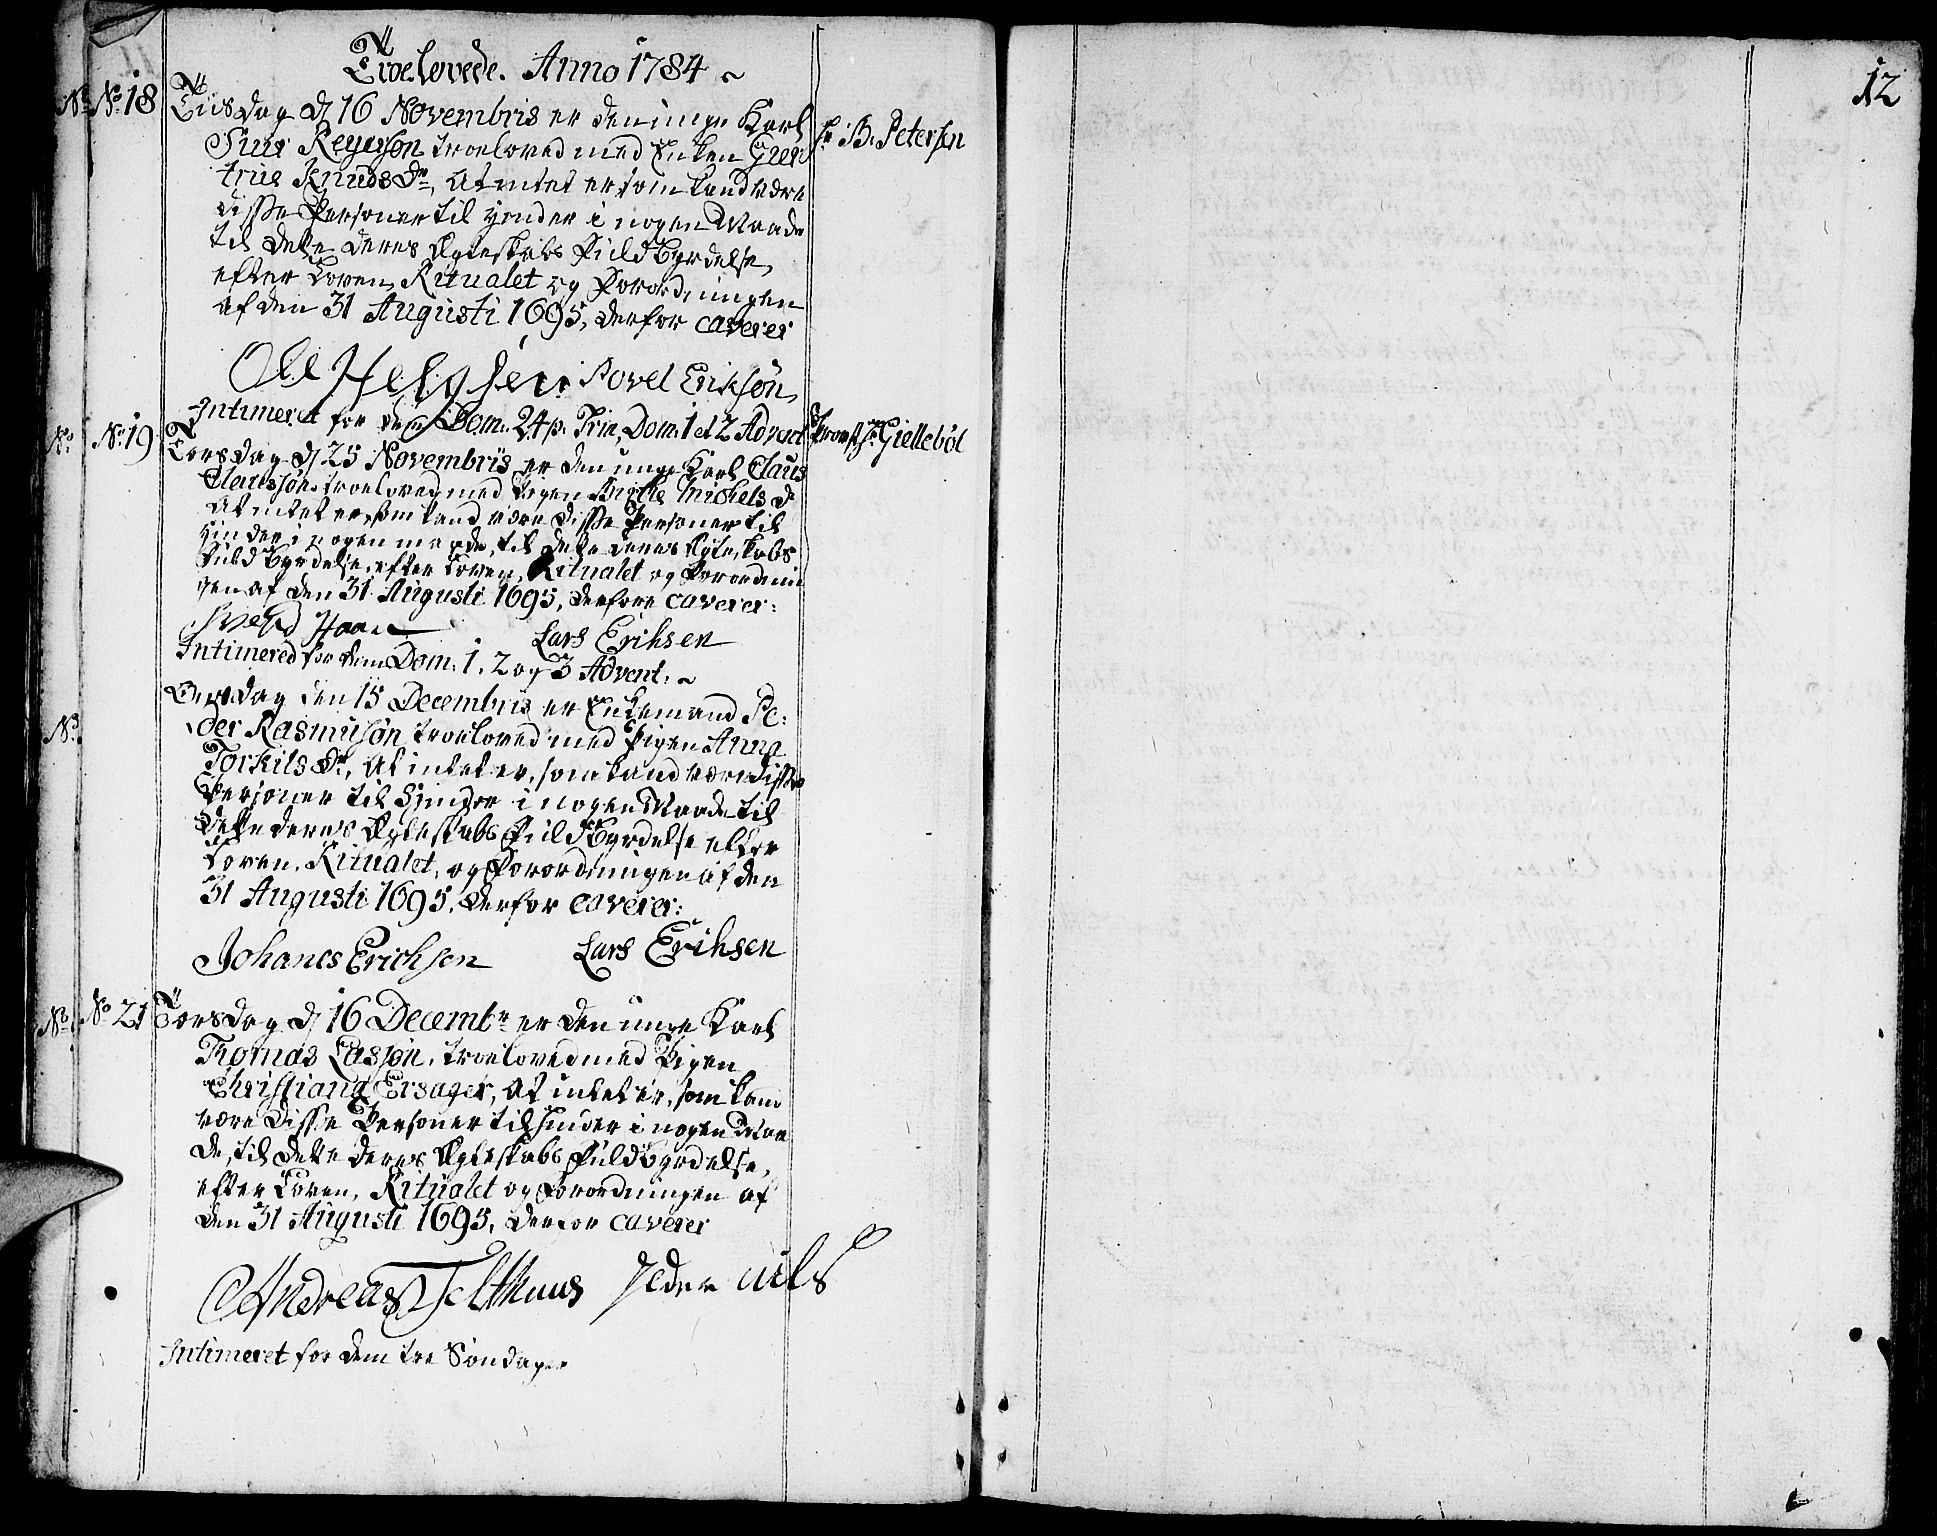 Troelovede. Anno 1784
No No 18 Tiisdag d 16 Novembris er den unge Karl
Siur Reyerssøn troeloved med Enken Giær
trüe Knuds Dr, At intet er som kand være
disse Personer til Hinder i nogen Maade
til dette deres Ægteskabs Fuldbyrdelse,
efter Loven, Ritualet og Forordningen
af den 31 Augusti 1695, derfor caverer
Hr B. Petersen
Ole Helgesen Povel Eriksøn,
Intimeret for dem Dom. 24 p. Trin, Dom: 1 et 2 Advent
No No 19 Torsdag d 25 Novembris er den unge Karl Claus
Claussøn troeloved med Pigen Michels D
At intet er, som kand være disse Personer til
Hinder i nogen maade, til dette deres Ægteskabs
Fuldbyrdelse, efter Loven, Ritualet og Forordnin
gen af den 31 Augusti 1695, derfore caverer:
Provst Hr Giellebøl
Lars Erihsen
Intimered for dem Dom: 1, 2 og 3 Advent.
No Onsdag den 15 Decembris er Enkemand Pe:
der Rasmusøn troeloved med Pigen Anna
Torkils Dr, At intet er, som kand være disse
Personer til Hinder i nogen Maade til
dette deres Ægteskabs Fuldbyrdelse efter
Loven, Ritualet, og Forordningen af den
31 Augusti 1695, derfor caverer:
Johanes Erichsen Lars Erihsen
No No 21 Torsdag d 16 Decembr er den unge Karl
Thomas Lassøn, troeloved med Pigen
Christiana Ersager, At intet er, som kand
være disse Personer til Hinder i nogen Maa
de, til dette deres Ægteskabs Fuldbyrdelse,
efter Loven, Ritualet og Forordningen af
den 31 Augusti 1695, derfor caverer
Andreas Felthuus Peder nils
Intimeret for dem tre Søndager
12